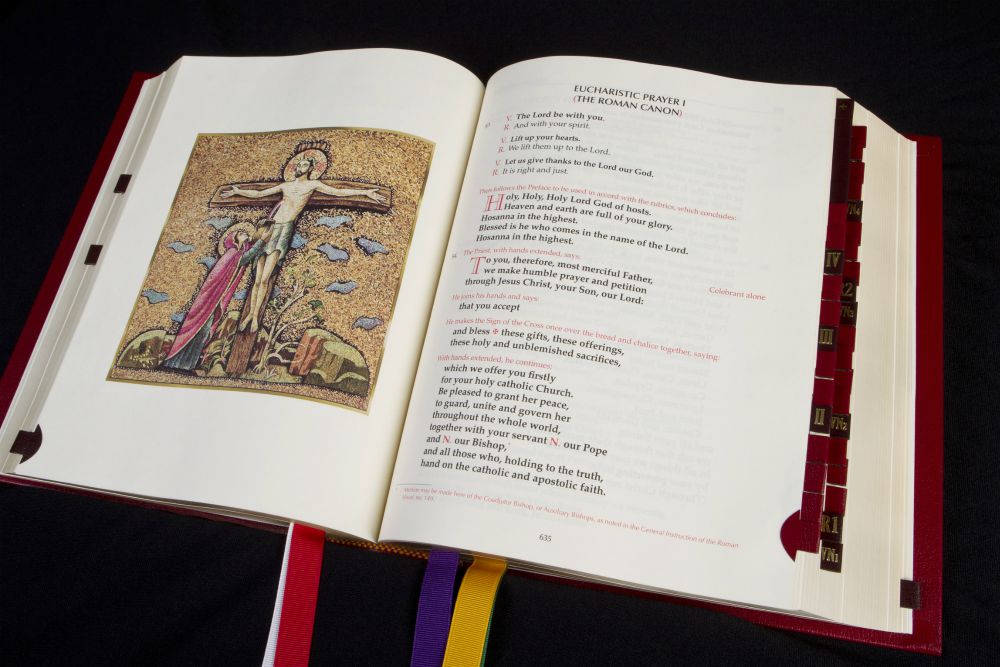 EUCHARISTIC PRAYER I
(THE ROMAN CANON)
V. The Lord be with you.
R. And with your spirit.
V. Lift up your hearts.
R. We lift them up to the Lord.
V. Let us give thanks to the Lord our God.
R. It is right and just.
Then follows the Preface to be used in accord with the rubrics, which concludes:
Holy, Holy, Holy Lord God of hosts.
Heaven and earth are full of your glory.
Hosanna in the highest.
Blessed is he who comes in the name of the Lord.
Hosanna in the highest.
84. The Priest, with hands extended, says:
To you, therefore, most merciful Father,
we make humble prayer and petition
through Jesus Christ, your Son, our Lord:
Celebrant alone
He joins his hands and says:
that you accept
He makes the Sign of the Cross once over the bread and chalice together, saying:
and bless ✠ these gifts, these offerings,
these holy and unblemished sacrifices,
With hands extended, he continues:
which we offer you firstly
for your holy catholic Church.
Be pleased to grant her peace,
to guard, unite and govern her
throughout the whole world,
together with your servant N. our Pope
and N. our Bishop,*
and all those who, holding to the truth,
hand on the catholic and apostolic faith.
* Mention may be made here of the Coadjutor Bishop, or Auxiliary Bishops, as noted in the General Instruction of the Roman
Missal, no. 149.
635
VN4
IV
R2
VN3
III
II
VN2
R1
VN1